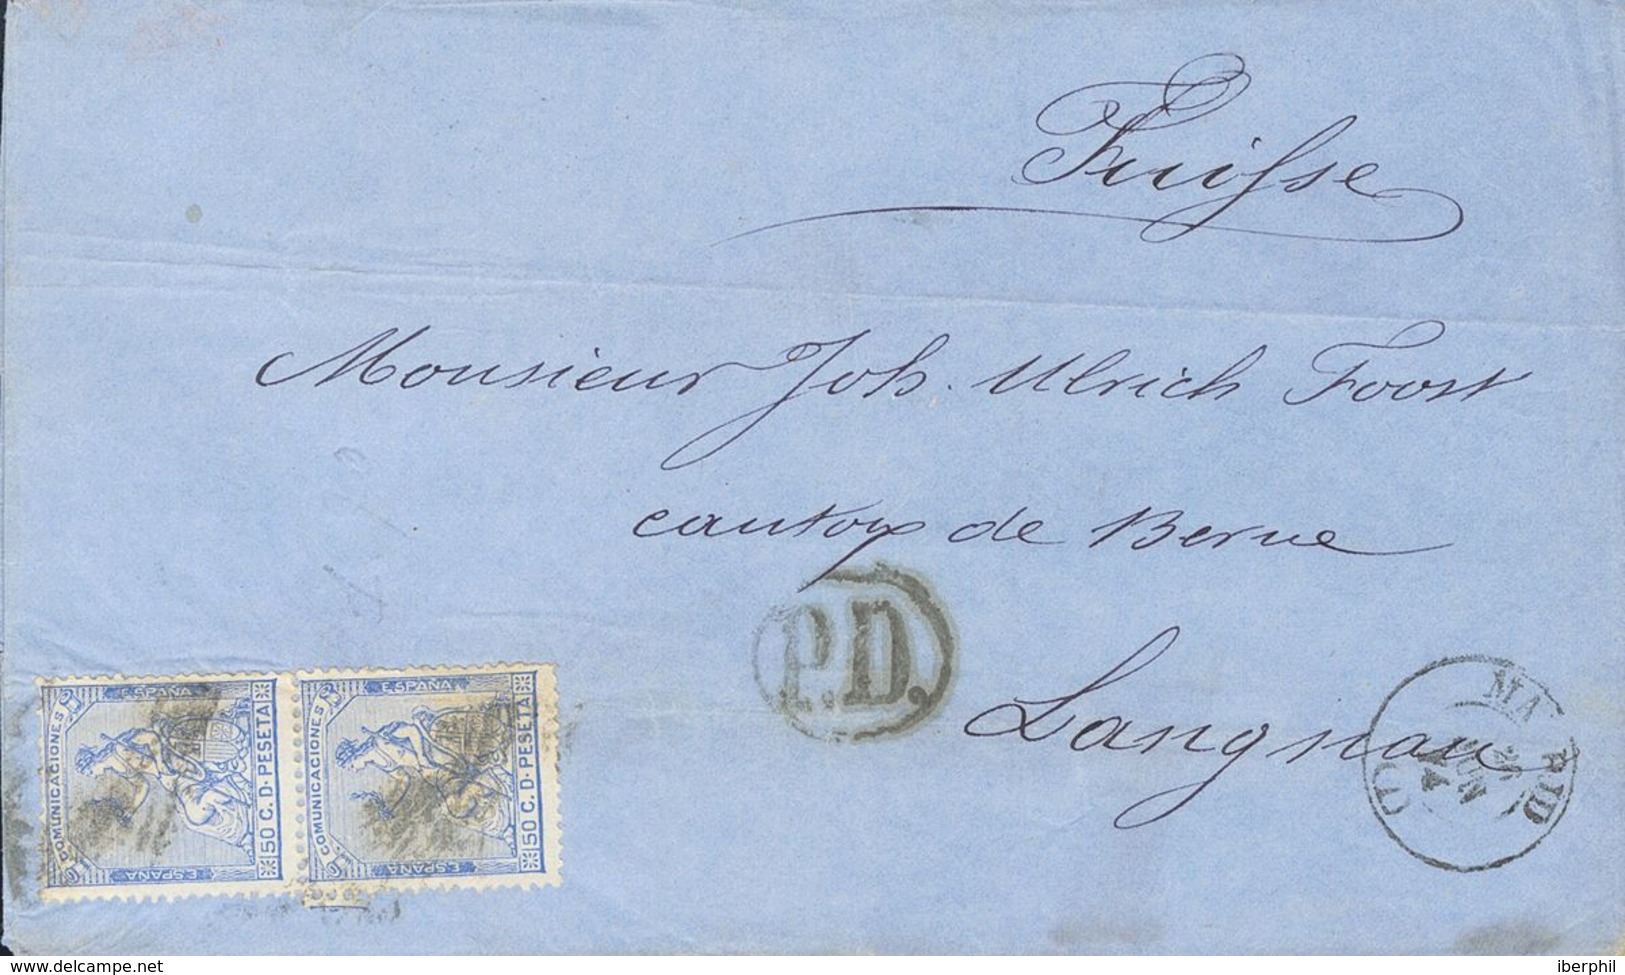 Suisse
Monsieur Joh. Ulrich Foost
canton de Berne
Langnau
P.D.
MADRID
JUN
74
(1)
COMUNICACIONES
ESPAÑA
50 C. D. PESETA
ESPAÑA
COMUNICACIONES
ESPAÑA
50 C. D. PESETA
ESPAÑA
delcampe.net
iberphil